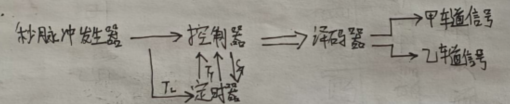 秒脉冲发生器 控制器 译码器 甲车道信号
乙车道信号
TL Ty
定时器